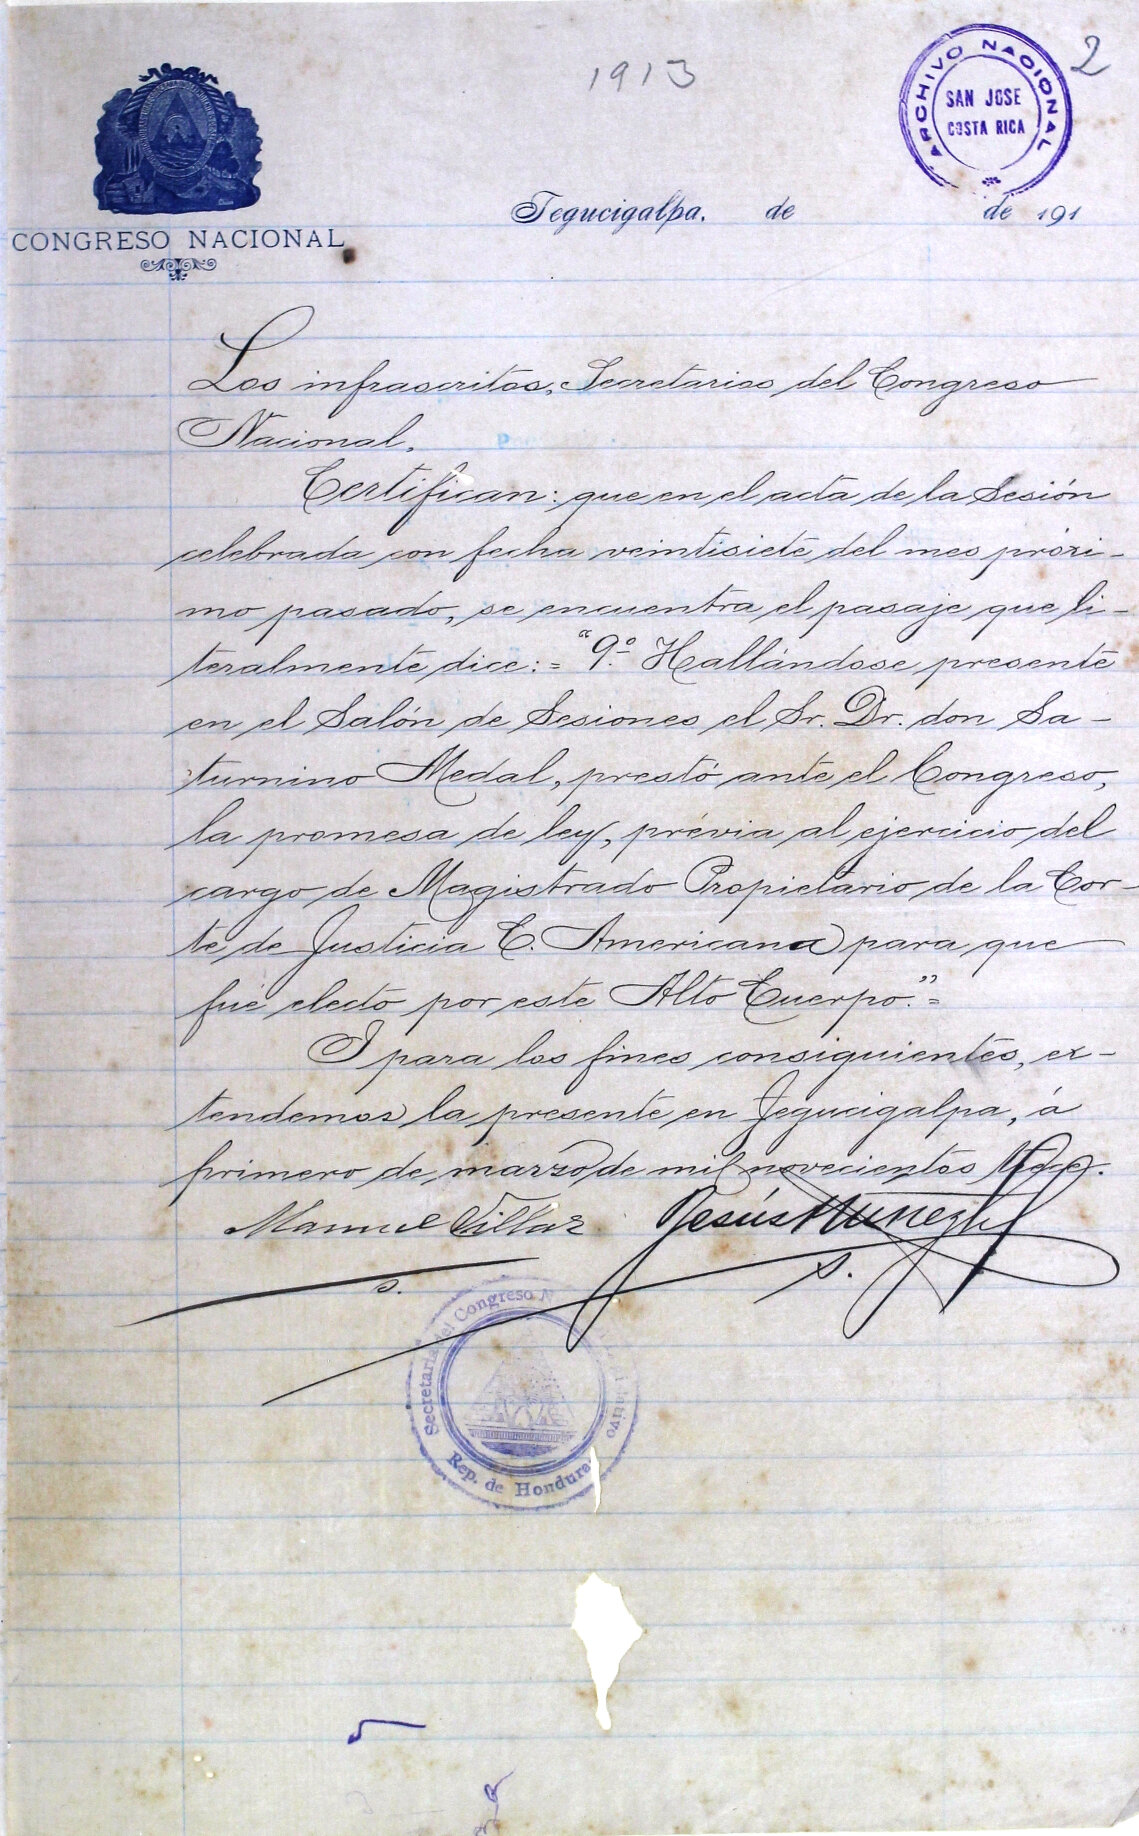 1913
2
ARCHIVO NACIONAL
SAN JOSE
COSTA RICA
Tegucigalpa, de de 191
CONGRESO NACIONAL
Los infrascritos, Secretarios del Congreso
Nacional,
Certifican: que en el acta de la Sesión
celebrada con fecha veintisiete del mes próxi-
mo pasado, se encuentra el pasaje que li-
teralmente dice:= "9º Hallándose presente
en el Salón de Sesiones el Sr. Dr. don Sa-
turnino Medal, prestó ante el Congreso,
la promesa de ley, prévia al ejercicio del
cargo de Magistrado Propietario de la Cor-
te de Justicia C. Americana para que
fué electo por este Alto Cuerpo."=
I para los fines consiguientes, ex-
tendemos la presente en Tegucigalpa, á
primero de marzo de mil novecientos trece.
Manuel Villar Jesús Núñez
S. S.
Secretaria del Congreso N
lativo
Rep. de Honduras